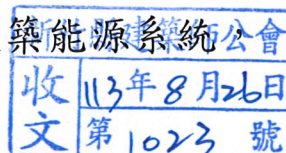 築能源系統，
建築師公會
收文
113年8月26日
第1023號